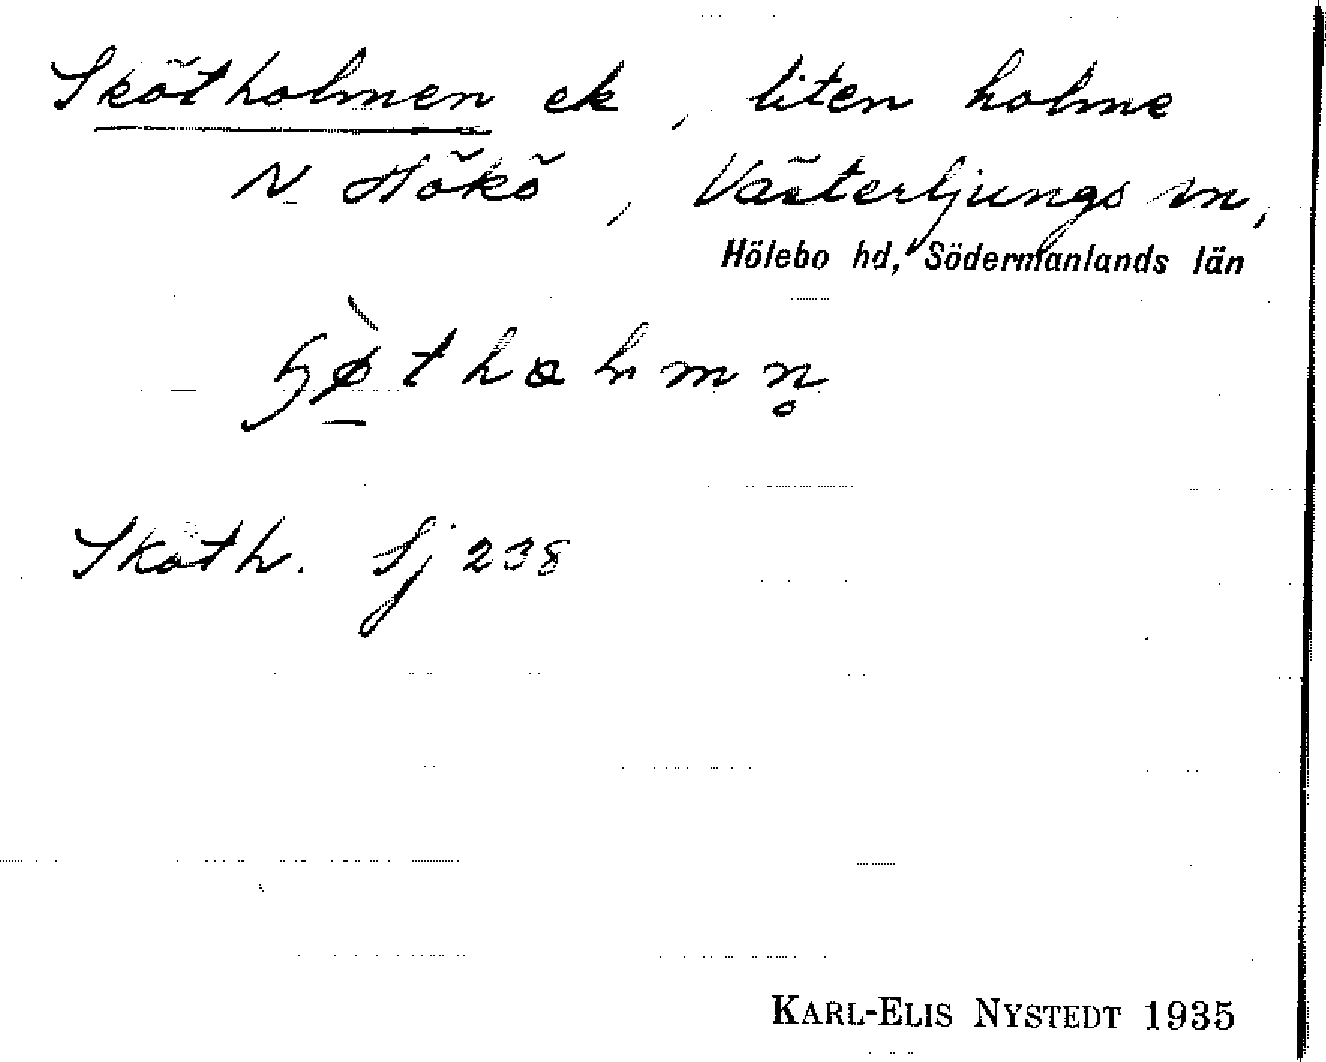 Skötholmen ek, liten holme
N Hökö, Västerljungs sn,
Hölebo hd, Södermanlands län
Sköth. Sj 238
KARL-ELIS NYSTEDT 1935